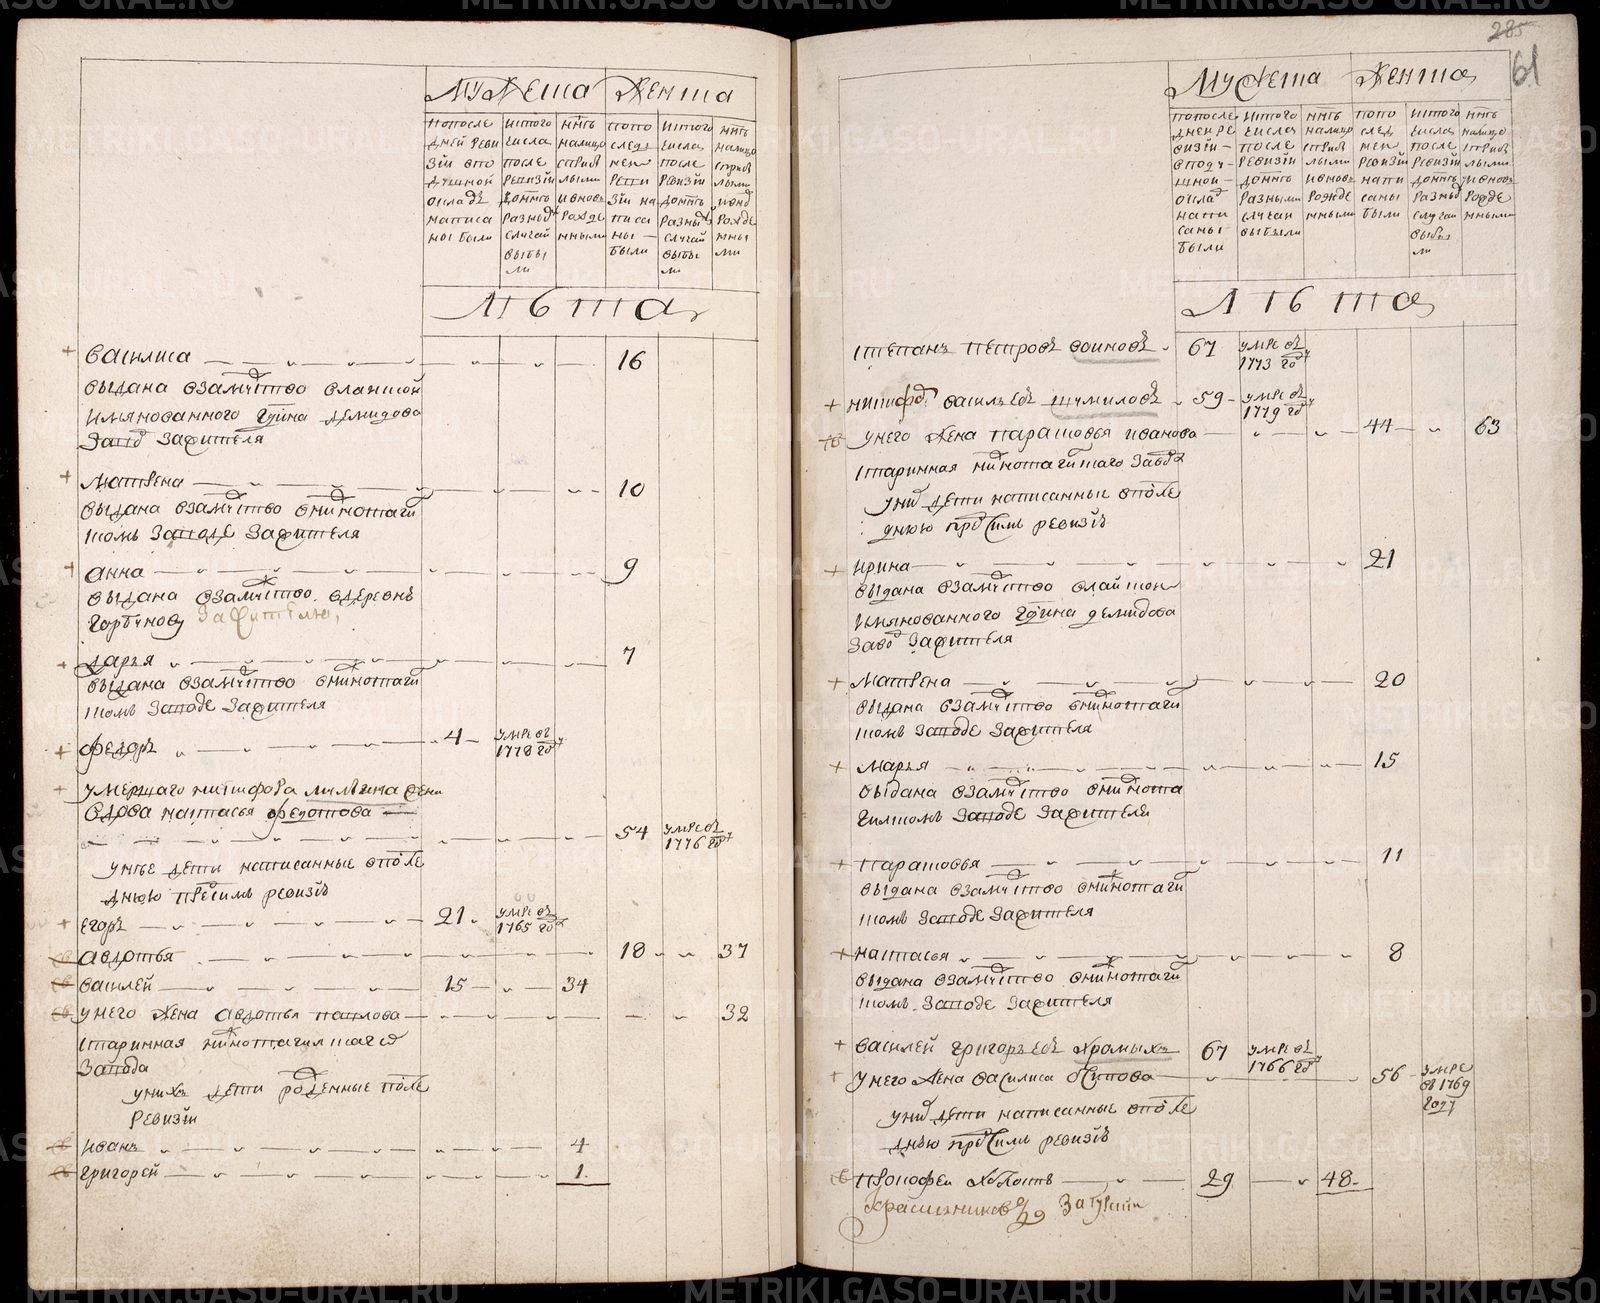 мужеска женска
попосле дней реви зіи впо душной окладъ написа ны были
изтого числа после ревизіи донынѣ разныхъ случай выбы ли
нынѣ налицо сприб лыми ивновь рожде нными
попо след ней реви зіи на писа ны были
изтого числа после ревизіи донынѣ разныхъ случай выбы ли
нынѣ налицо сприб лыми ивновь рожде нны ми
лѣта
василиса 16
выдана взамужство
имянованного гдина демидова
заводъ зажителя
матрена 10
выдана взамужство внижнотаги
лскомъ заводе зажителя
анна 9
выдана взамужство вдеревнѣ
горбунову зажителя
дарья 7
выдана взамужство внижнотаги
лскомъ заводе зажителя
федоръ 4 умре въ 1778 году
умершаго никифора жена
вдова настасья федотова
54 умре въ 1776 году
унее дети написанные впосле
днюю пред симъ ревизію
егоръ 21 умре въ 1765 году
авдотья 18 37
василей 15 34
унего жена авдотья павлова 32
старинная нижнотагилскаго
завода
унихъ дети рожденные после
ревизіи
иванъ 4
григорей 1
285
61
мужеска женска
попосле дней ре визіи вподу шной оклад напи саны были
изтого числа после ревизіи донынѣ разными случаи выбыли
нынѣ налицо сприб лыми ивновь рожде нными
попо след ней ревизіи напи саны были
изтого числа после ревизіи донынѣ разными случаи выбы ли
нынѣ налицо сприб лыми ивновь рожде нными
лѣта
степанъ петровъ воиновъ 67 умре въ 1773 году
никифоръ васильевъ шумиловъ 59 умре въ 1779 году
унего жена парасковья иванова 44 63
старинная нижнотагилскаго завода
унихъ дети написанные впосле
днюю пред симъ ревизію
ирина 21
выдана взамужство
имянованного гдина демидова
заводъ зажителя
матрена 20
выдана взамужство внижнотаги
лскомъ заводе зажителя
марья 15
выдана взамужство внижнота
гилскомъ заводе зажителя
парасковья 11
выдана взамужство внижнотаги
лскомъ заводе зажителя
настасья 8
выдана взамужство внижнотаги
лскомъ заводе зажителя
василей григорьевъ хромыхъ 67 умре въ 1766 году
унего жена василиса осипова 56 умре въ 1769 году
унихъ дети написанные впосле
днюю пред симъ ревизію
прокофеи холостъ 29 48
METRIKI.GASO-URAL.RU